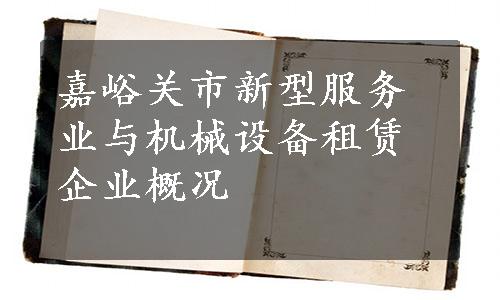 嘉峪关市新型服务
业与机械设备租赁
企业概况